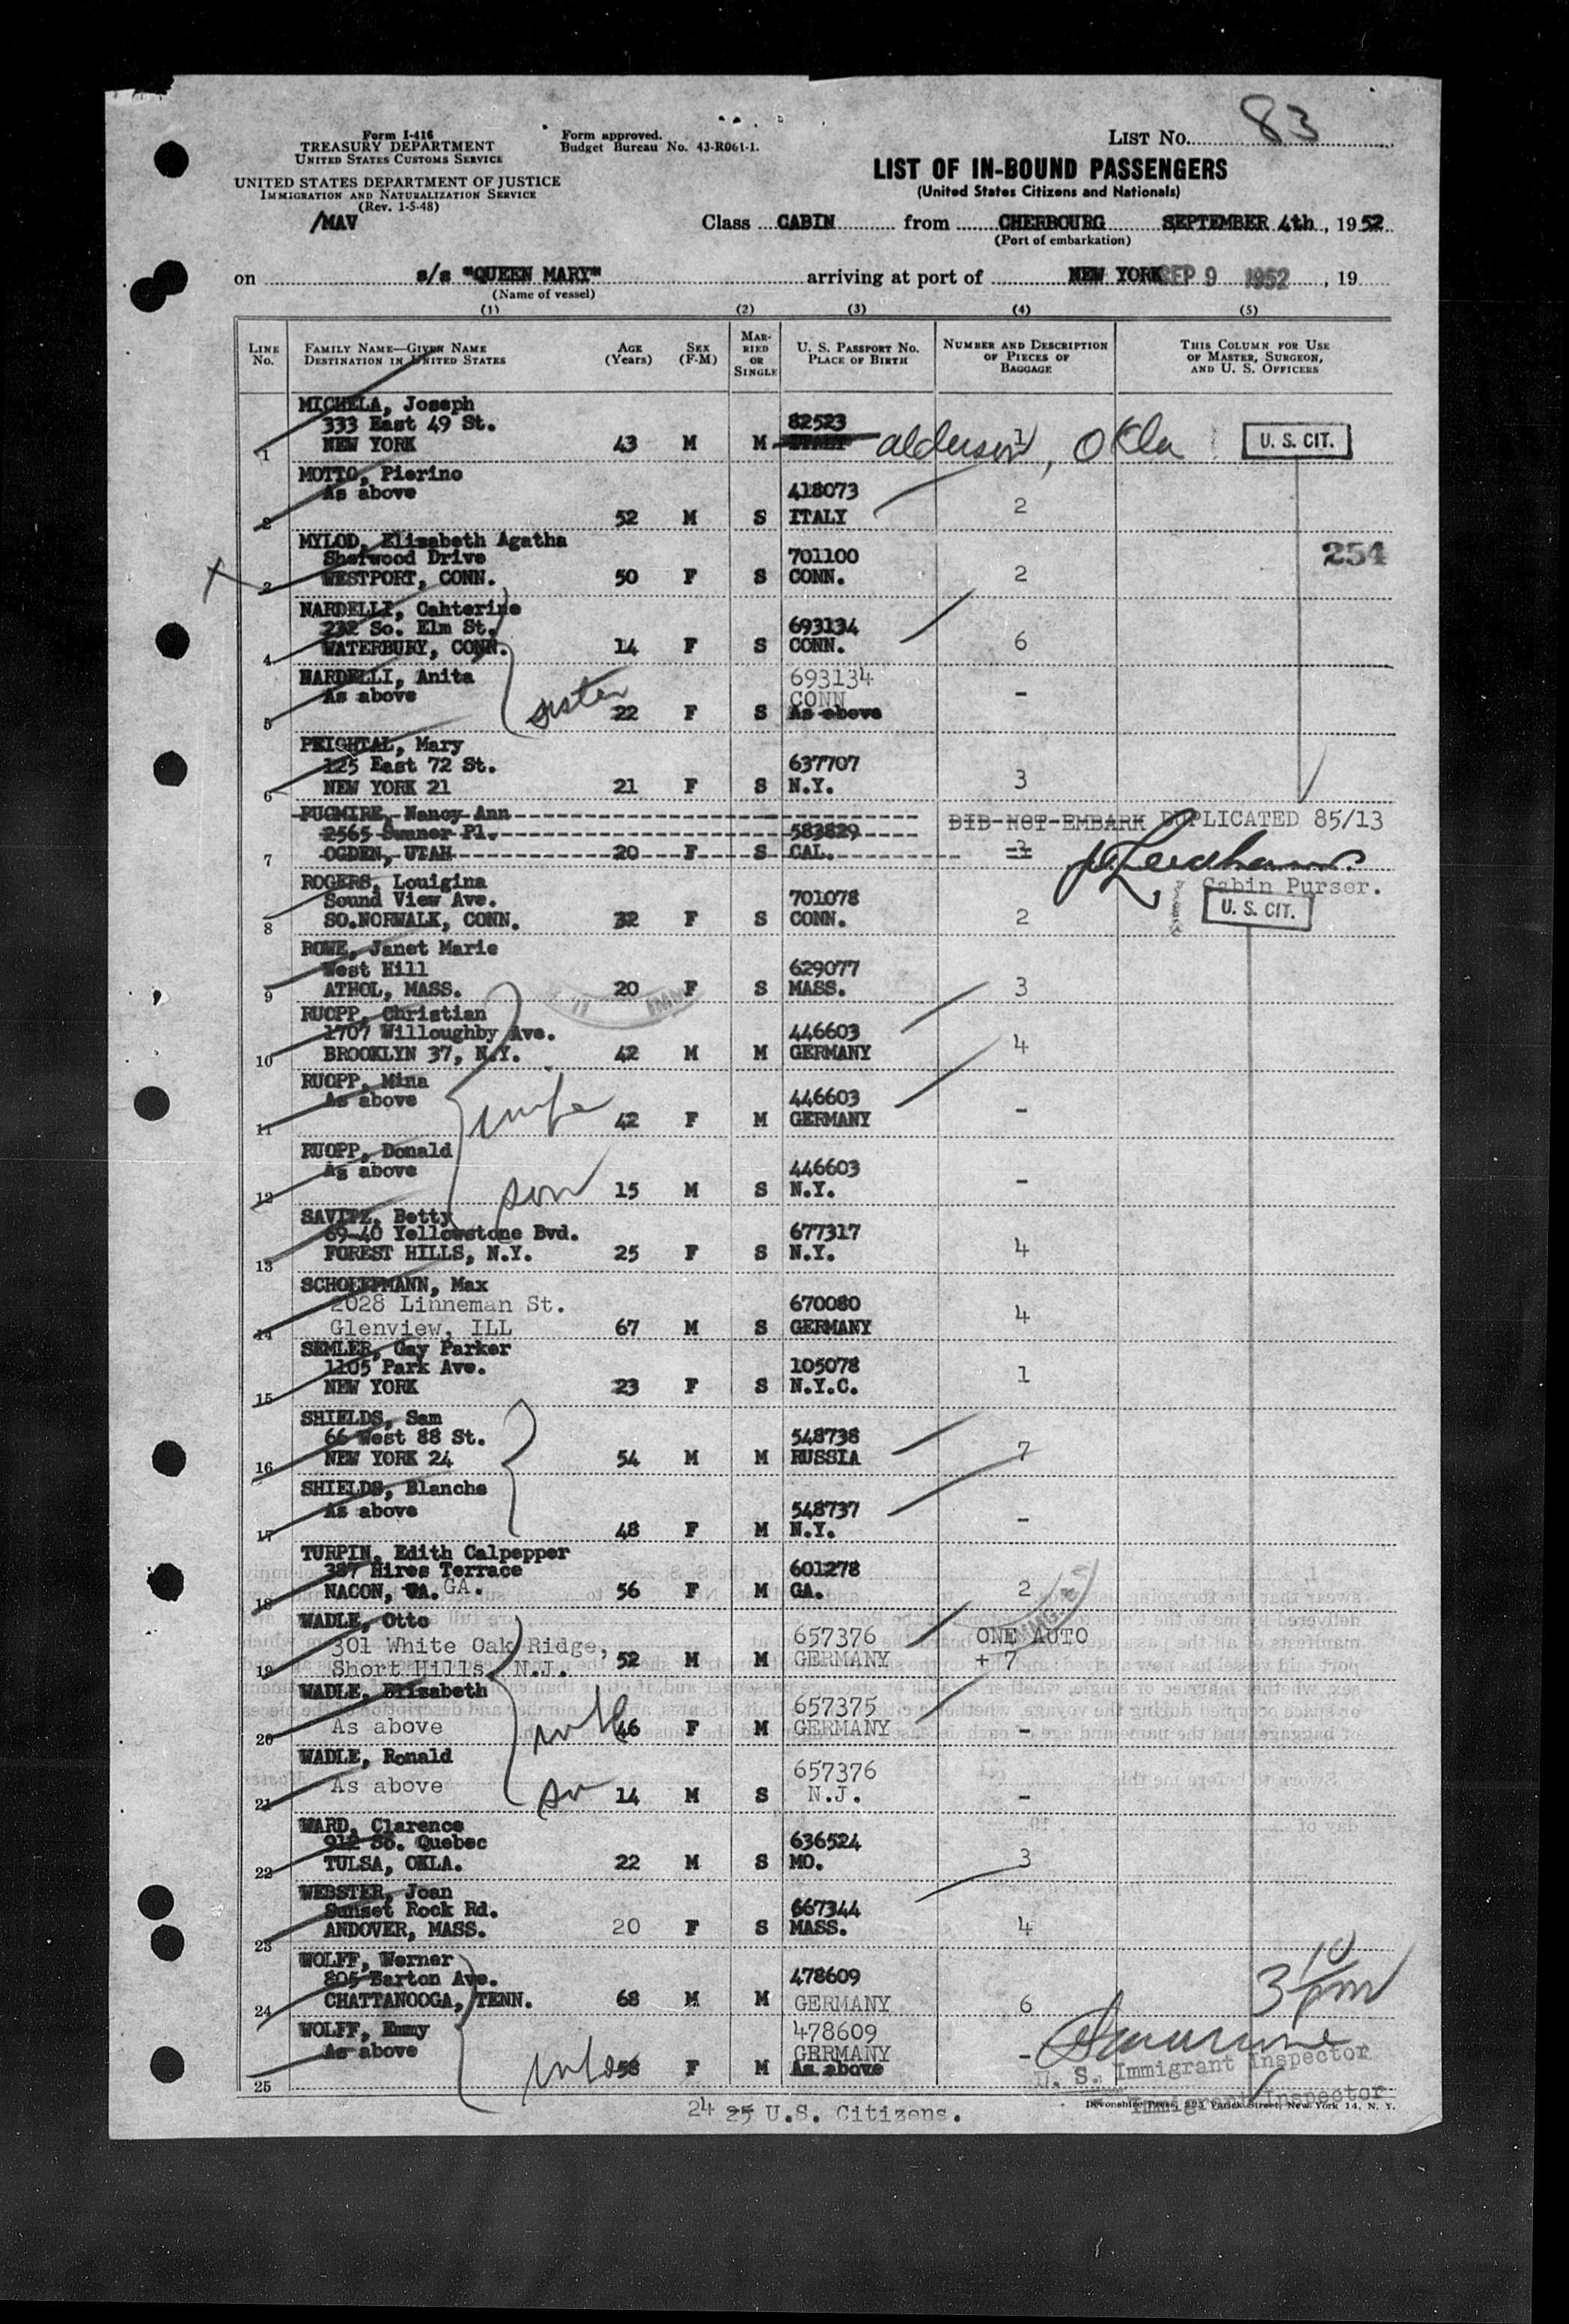 83
List No.
Form I-416
TREASURY DEPARTMENT
United States Customs Service
Form approved.
Budget Bureau No. 43-R061-1.
UNITED STATES DEPARTMENT OF JUSTICE
Immigration and Naturalization Service
(Rev. 1-5-48)
/MAV
LIST OF IN-BOUND PASSENGERS
(United States Citizens and Nationals)
Class CABIN from CHERBOURG SEPTEMBER 4th, 1952
(Port of embarkation)
on s/s "QUEEN MARY" arriving at port of NEW YORK SEP 9 1952, 19
(Name of vessel)
(1) (2) (3) (4) (5)
Line No.
Family Name—Given Name
Destination in United States
Age (Years)
Sex (F-M)
Married or Single
U. S. Passport No.
Place of Birth
Number and Description of Pieces of Baggage
This Column for Use of Master, Surgeon, and U. S. Officers
MICHELA, Joseph
333 East 49 St. 82523
1 NEW YORK 43 M M ITALY Alderson, Okla 1 U. S. CIT.
MOTTO, Pierino
As above 418073
2 52 M S ITALY 2
MYLOD, Elizabeth Agatha 254
Sherwood Drive 701100
X 3 WESTPORT, CONN. 50 F S CONN. 2
NARDELLI, Cahterine
232 So. Elm St. 693134
4 WATERBURY, CONN. 14 F S CONN. 6
NARDELLI, Anita 693134
As above CONN
5 sister 22 F S As above -
PEIGHTAL, Mary
125 East 72 St. 637707
6 NEW YORK 21 21 F S N.Y. 3
PUGMIRE, Nancy Ann DID NOT EMBARK DUPLICATED 85/13
2565 Sumner Pl. 583829
7 OGDEN, UTAH 20 F S CAL. 3
Cabin Purser.
ROGERS, Louigina
Sound View Ave. 701078 U. S. CIT.
8 SO.NORWALK, CONN. 32 F S CONN. 2
ROWE, Janet Marie
West Hill 629077
9 ATHOL, MASS. 20 F S MASS. 3
RUOPP, Christian
1707 Willoughby Ave. 446603
10 BROOKLYN 37, N.Y. 42 M M GERMANY 4
RUOPP, Mina
As above 446603
11 wife 42 F M GERMANY -
RUOPP, Donald
As above 446603
12 son 15 M S N.Y. -
SAVITZ, Betty
69-40 Yellowstone Bvd. 677317
13 FOREST HILLS, N.Y. 25 F S N.Y. 4
SCHOEFFMANN, Max
2028 Linneman St. 670080
14 Glenview, ILL 67 M S GERMANY 4
SEMLER, Gay Parker
1105 Park Ave. 105078
15 NEW YORK 23 F S N.Y.C. 1
SHIELDS, Sam
66 West 88 St. 548738
16 NEW YORK 24 54 M M RUSSIA 7
SHIELDS, Blanche
As above 548737
17 48 F M N.Y. -
TURPIN, Edith Calpepper
387 Hires Terrace 601278
18 NACON, GA. 56 F M GA. 2
WADLE, Otto
301 White Oak Ridge, 657376 ONE AUTO
19 Short Hills, N.J. 52 M M GERMANY + 7
WADLE, Elizabeth 657375
20 As above wife 46 F M GERMANY -
WADLE, Ronald 657376
As above N.J.
21 son 14 M S -
WARD, Clarence
912 So. Quebec 636524
22 TULSA, OKLA. 22 M S MO. 3
WEBSTER, Joan
Sunset Rock Rd. 667344
23 ANDOVER, MASS. 20 F S MASS. 4
WOLFF, Werner
805 Barton Ave. 478609
24 CHATTANOOGA, TENN. 68 M M GERMANY 6 3 10 pm
WOLFF, Emmy 478609
As above GERMANY
25 wife 58 F M As above -
U. S. Immigrant Inspector
Immigrant Inspector
24 25 U.S. Citizens.